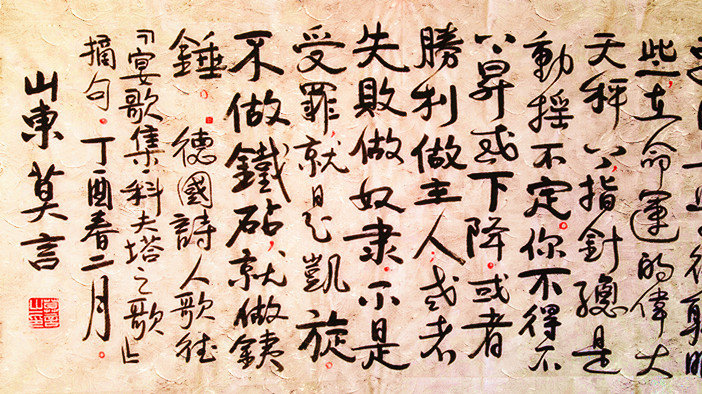 些在命運的偉大
天秤上指針總是
動搖不定。你不得不
上昇或下降。或者
勝利做主人,或者
失敗做奴隶。不是
受罪,就是凱旋。
不做鐵砧,就做銕
錘。德國詩人歌德
『宴歌集·科夫塔之歌』
摘句。丁酉春二月。
山東莫言